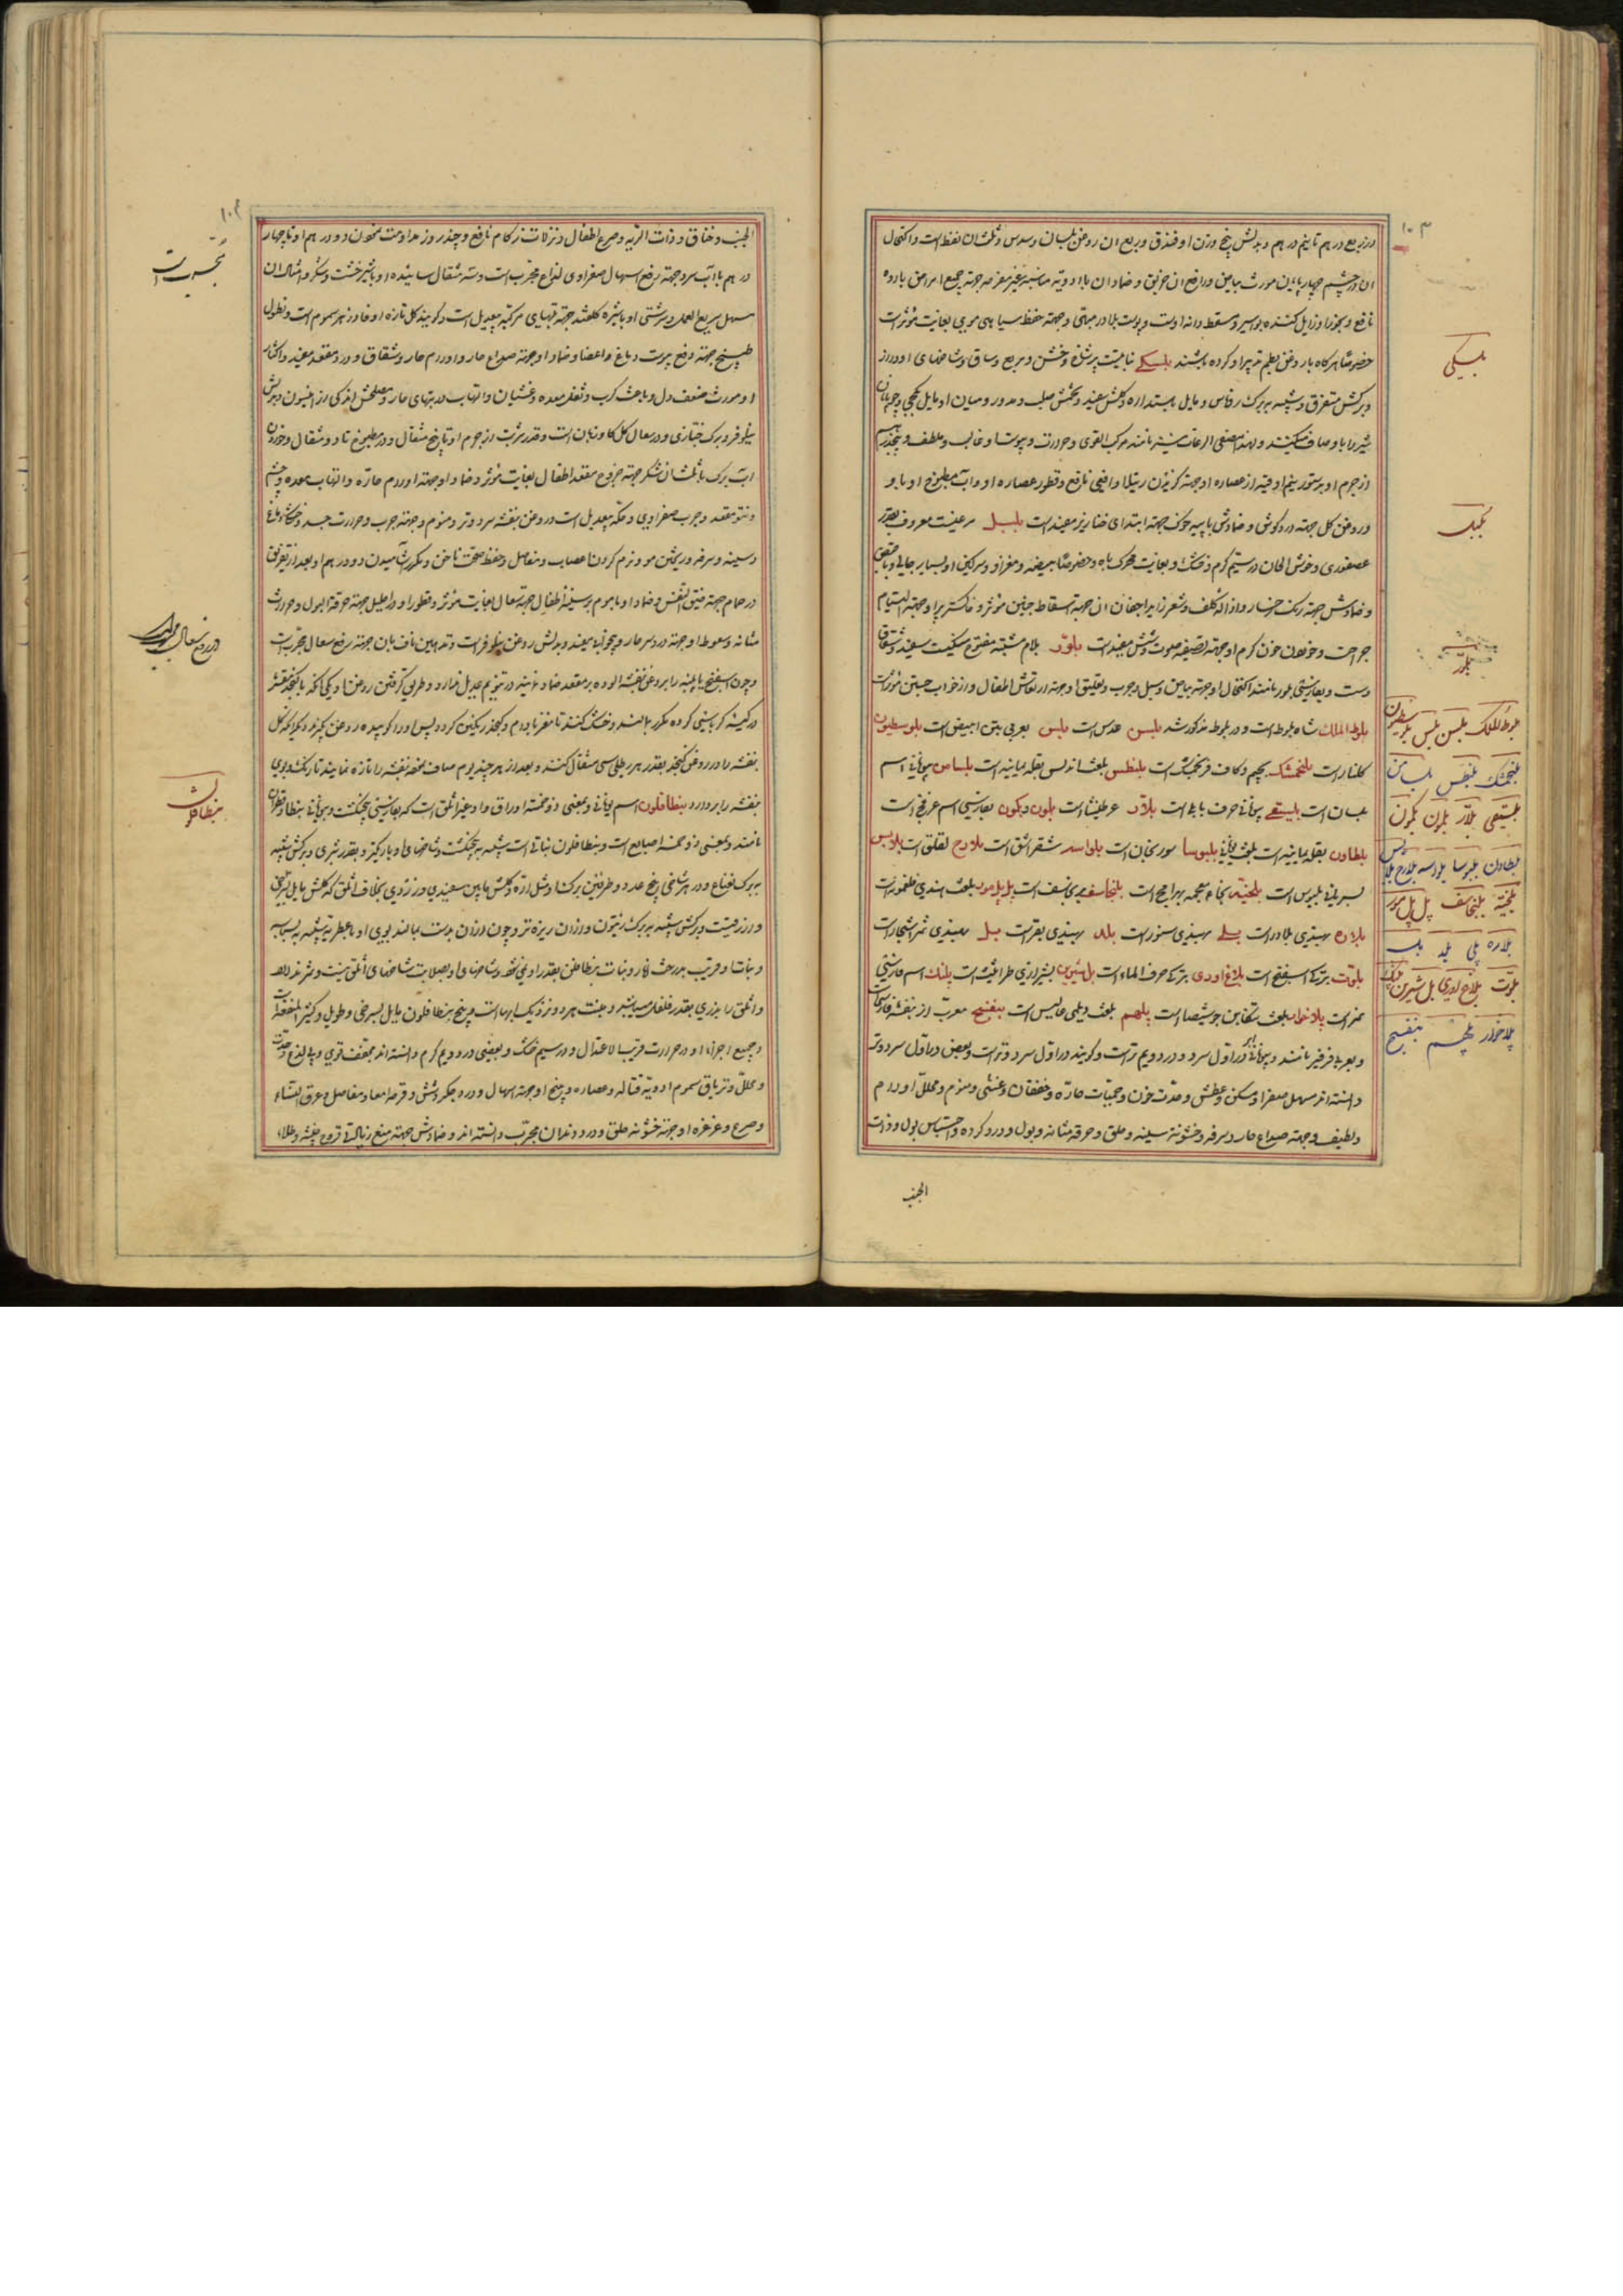 ۱۰۳
در ربع درهم تا نیم درهم و بدلش پنج وزن او فندق و ربع ان روغن بلسان و سدس و ثلث ان نفط است و اکتحال
ان در چشم چهار پایان مورث بیاض و رافع ان و ضماد ان با ادویه مناسبه جهة جمیع امراض بارده
نافع و بخور او زایل کننده بواسیر و مسقط دانه اوست و پوست بلادر جهة حفظ سیاهی موی بغایت مؤثر است
خصوصا هرکاه با روغن بطم تدبیر او کرده باشند بلسکی نباتیست پرشاخ و خشن و مربع و ساق و شاخهای او دراز
و برکش متفرق و شبیه ببرک روناس و مایل باستداره و کلش سفید و تخمش صلب و مدور و میان او مایل بکجی و چوپانان
شیر را باو صاف میکنند و لهذا مصفی الرعاة نیز نامند مرکب القوی و حرارت و یبوست او غالب و ملطف و
از جرم او بدستور نیم اوقیه از عصاره او جهة کزیدن رتیلا و افعی نافع و قطور عصاره او و اب مطبوخ او با
و روغن کل جهة درد کوش و ضمادش با پیه خوک جهة ابتدای خنازیر مفید است بلبل مرغیست معروف بقدر
عصفوری و خوش الحان در سیم کرم و خشک و بغایت محرک باه و خصوصا بیضه و مغز او و سرکین او بسیار جالی و با
و ضمادش جهة رنک رخسار و ازاله کلف و شعر زاید اجفان ان جهة اسقاط جنین مؤثر و خاکستر پر او جهة التیام
جراحت و خوردن خون کرم او جهة تصفیه صوت و شش مفید است بلور بلام مشدده مفتوح سنکیست سفید و شفاف
و بفارسی بلور نامند اکتحال او جهة بیاض و سبل و جرب و تعلیق او جهة ارتعاش اطفال و از خواب جستن مؤثر است
بلوط الملک شاه بلوط است و در بلوط مذکور شد بلسن عدس است بلس بعربی تین ابیض است بلوسطیون
کلنار است بلنخمشک بجیم و کاف فرنجمشک است بلنطس بلغت اندلس بقله یمانیه است بلسامن یونانی اسم
بلسان است بلیسقی یونانی حرف بابلی است بلار عرطنیثا است بلون و بکون بفارسی اسم عرفج است
بلطاون بقله یمانیه است بلغت یونانی بلبوسا سورنجان است بلواسه شقرائق است بلارج لقلق است بلابس
بسریانی بلبوس است بلخیه بخاء معجمه بهرامج است بلنجاسف برنجاسف است پل پل مور بلغت هندی فلفلمویه است
بلاده بهندی بلادر است بلی بهندی سنور است بلد بهندی بقر است بل بهندی ثمر اشجار است
بلوت بترکی اسفنج است بلاغ اودی بترکی حرف الماء است بل شیرین بشیرازی طراثیث است پلنک اسم فارسی
نمر است پلاخواب بلغت تنکابن جو شیصا است پلهم بلغت دیلمی خالیس است بنفسج معرب از بنفشه فارسی است
و بعربی فرفیر نامند در اول سرد و در دویم تر است و کویند در اول سرد و تر است و بعضی در اول سرد و در تر
دانسته اند مسهل صفرا و مسکن عطش و حدت خون و حمیات حاره و خفقان و غشی و منوم و محلل اورام
و لطیف و جهة صداع حار و سرفه و خشونة سینه و حلق و حرقه مثانه و بول و درد کرده و احتباس بول و ذات
الجنب
بلسکی
بلبل
بلور
بلوط الملک بلسن بلس بلوسطیون
بلنخمشک بلنطس بلسامن
بلیسقی بلار بلون بکون
بلطاون بلبوسا بلواسه بلارج بلابس
بلخیه بلنجاسف پل پل مور
بلاده بلی بلد بل
بلوت بلاغ اودی بل شیرین پلنک
پلاخواب پلهم بنفسج
۱۰۴
الجنب و خناق و ذات الریه و صرع اطفال و نزلات و زکام نافع و چند روز مداومت سفوف دو درهم او تا چهار
درهم با اب سرد جهة رفع اسهال صفراوی لذاع مجرب است و سه مثقال سائیده او با شیرخشت و شکر و امثال ان
مسهل سریع العمل و شستی او با شیره کلقند جهة تبهای مرکبه بیعدیل است و کویند کل تازه او فادزهر سموم است و نطول
طبیخ جهة رفع یبوست دماغ و اعضا و ضماد او جهة صداع حار و اورام حار و شقاق و درد مقعد مفید و اکثار
او مورث ضعف دل و باعث کرب و ثقل معده و غشیان و التهاب در تبهای حار و مصلحش اندکی از انیسون و بدلش
نیلوفر و برک خبازی و در سعال کل کاوزبان است و قدر شربت از جرم او تا پنج مثقال و در مطبوخ تا دو مثقال و خوردن
اب برک با ثلث ان شکر جهة خروج مقعد اطفال بغایت مؤثر و ضماد او جهة اورام حاره و التهاب معده و چشم
و نتو مقعد و جرب صفراوی و حکه بیعدیل است و روغن بنفشه سرد و تر و منوم و جهة جرب و حرارت جسد و خشکی دماغ
و سینه و سرفه و ریختن مو و نرم کردن اعصاب و مفاصل و حفظ صحت ناخن و مکرر اشامیدن دو درهم او بعد از تعریق
در حمام جهة ضیق النفس و ضماد او با موم بر سینه اطفال جهة سعال بغایت مؤثر و قطور او در احلیل جهة حرقة البول و حرارت
مثانه و سعوط او جهة درد سر حار و بیخوابی مفید و بدلش روغن نیلوفر است و تدهین ناف بان جهة رفع سعال مجرب است
و چون اسفنج یا پنبه را بروغن بنفشه الوده بر مقعد ضماد نمایند در تنویم عدیل ندارد و طریق کرفتن روغن او یکی انکه با کنجد مقشر
در کیسه کرباسی کرده مکرر بمالند و خشک کنند تا مغز بادام و کنجد رنکین کردد پس او را کوبیده روغن بکیرند و دیکر انکه کل
بنفشه را در روغن کنجد بقدر هر رطلی سی مثقال کنند و بعد از هر چند یوم صاف نموده بنفشه را تازه نمایند تا رنک و بوی
بنفشه را بردارد بنطافلون اسم یونانی و بمعنی ذو خمسة اوراق و او غیر اثلق است که بفارسی پنجنکشت و بیونانی بنطادقطولن
نامند و بمعنی ذو خمسه اصابع است و بنطافلون نباتی است شبیه به پنجنکشت و شاخهای او باریکتر و بقدر شبری و برکش شبیه
به برک نعناع و در هر شاخی پنج عدد و طرفین برک اره و کلش مابین سفیدی و زردی بخلاف اثلق که کلش مایل بسرخی
و ارزقیست و برکش شبیه به برک زیتون و از ان ریزه تر و چون از ان بدست بمالند بوی او با عطریه شبیه به بسباسه
و نبات او قریب بدرخت انار و نبات بنطافلن بقدر او نمیشود و شاخهای او بصلابت شاخهای اثلق نیست و ثمر ندارد
و اثلق را بزری بقدر فلفل میباشد و منبت هر دو نزدیک ابهاست و بیخ بنطافلون مایل بسرخی و طویل و کثیر المنفعة است
و جمیع اجزاء او در حرارت قریب الاعتدال و در سیم خشک و بعضی در دویم کرم دانسته اند مجفف قوی و بی لذع و حدت
و محلل و تریاق سموم ادویه قتاله و عصاره و بیخ او جهة اسهال و درد جکر و شش و قرحه امعا و مفاصل و عرق النساء
و صرع و غرغره او جهة خشونه حلق و درد دندان مجرب دانسته اند و ضمادش جهة منع زیادتی قروح خبیثه و طلاء
مجرب است
در رفع سعال
بنطافلون